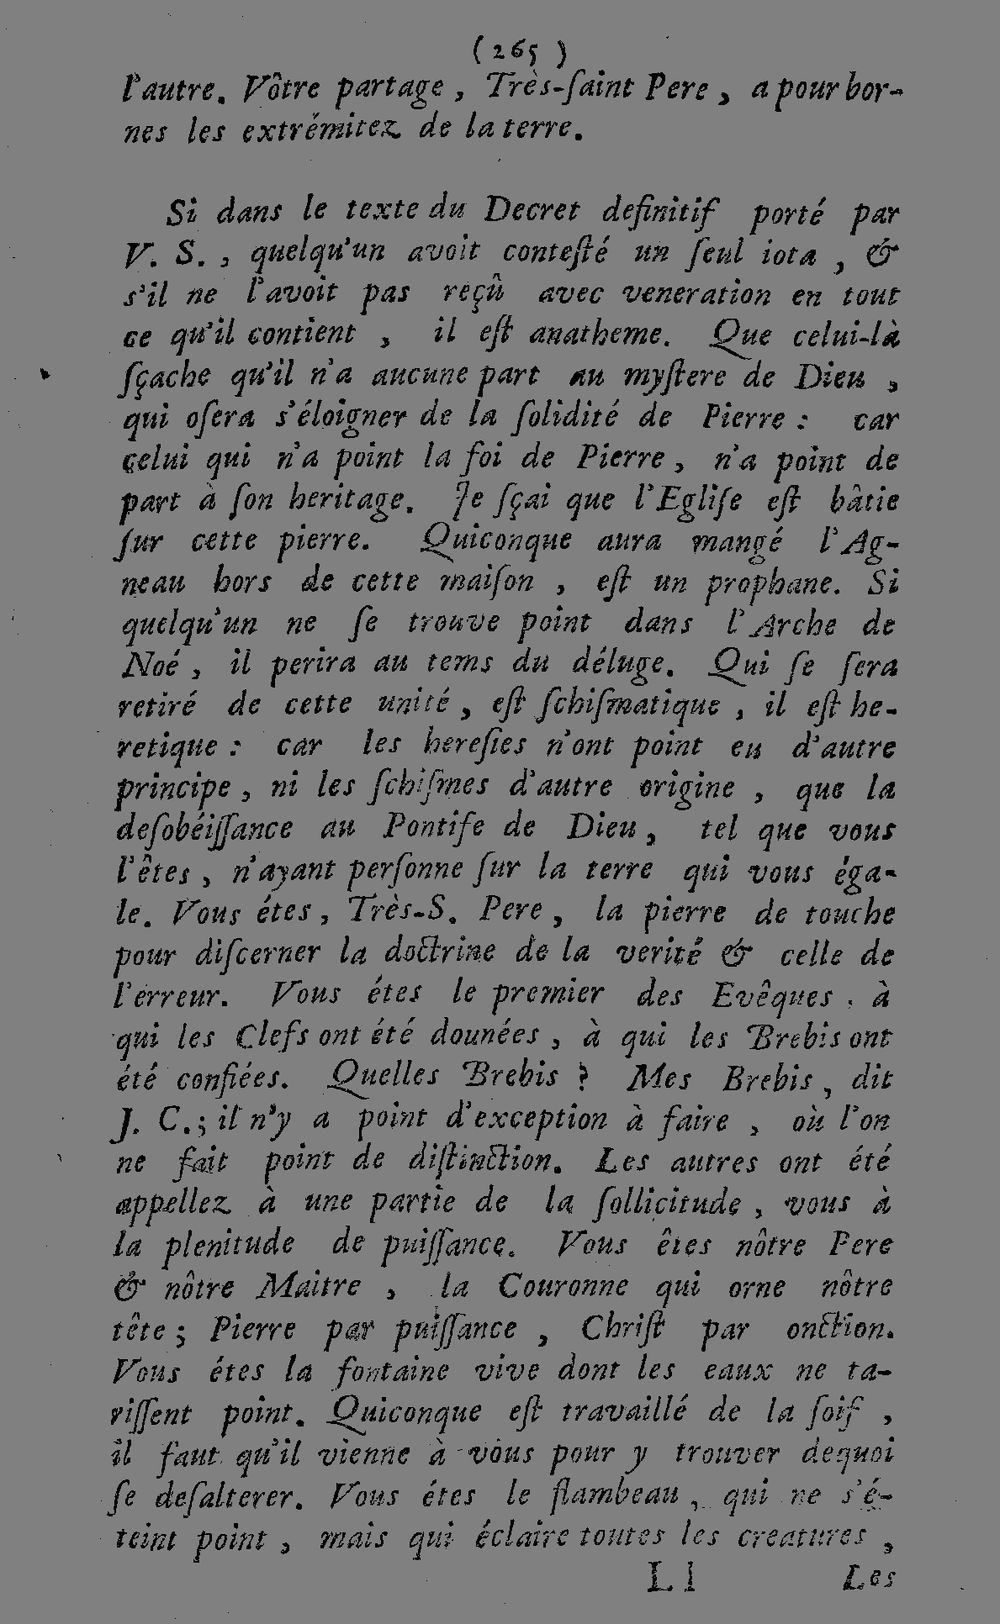 ( 265 )
l'autre. Vôtre partage, Très-ſaint Pere, a pour bor-
nes les extrémitez de la terre.
Si dans le texte du Decret definitif porté par
V. S., quelqu'un avoit conteſté un ſeul iota, &
s'il ne l'avoit pas reçû avec veneration en tout
ce qu'il contient, il eſt anatheme. Que celui-là
ſçache qu'il n'a aucune part au myſtere de Dieu,
qui oſera s'éloigner de la ſolidité de Pierre: car
celui qui n'a point la foi de Pierre, n'a point de
part à ſon heritage. Je ſçai que l'Egliſe eſt bâtie
ſur cette pierre. Quiconque aura mangé l'Ag-
neau hors de cette maiſon, eſt un prophane. Si
quelqu'un ne ſe trouve point dans l'Arche de
Noé, il perira au tems du déluge. Qui ſe ſera
retiré de cette unité, eſt ſchiſmatique, il eſt he-
retique: car les hereſies n'ont point eu d'autre
principe, ni les ſchiſmes d'autre origine, que la
deſobéiſſance au Pontife de Dieu, tel que vous
l'êtes, n'ayant perſonne ſur la terre qui vous éga-
le. Vous étes, Très-S. Pere, la pierre de touche
pour diſcerner la doctrine de la verité & celle de
l'erreur. Vous étes le premier des Evêques. à
qui les Clefs ont été dounées, à qui les Brebis ont
été confiées. Quelles Brebis? Mes Brebis, dit
J. C.; il n'y a point d'exception à faire, où l'on
ne fait point de diſtinction. Les autres ont été
appellez à une partie de la ſollicitude, vous à
la plenitude de puiſſance. Vous êtes nôtre Pere
& nôtre Maitre, la Couronne qui orne nôtre
tête; Pierre par puiſſance, Chriſt par onction.
Vous étes la fontaine vive dont les eaux ne ta-
riſſent point. Quiconque eſt travaillé de la ſoif,
il faut qu'il vienne à vous pour y trouver dequoi
ſe deſalterer. Vous étes le flambeau, qui ne s'é-
teint point, mais qui éclaire toutes les creatures,
L l Les